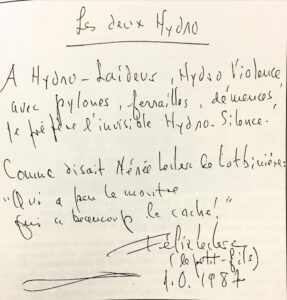 Les deux Hydro
A Hydro-Laideur, Hydro Violence
avec pylones, ferrailles, démences,
je préfère l'invisible Hydro-Silence.
Comme disait Nérée Leclerc de Lotbinière:
"Qui a peu le montre
qui a beaucoup le cache!"
Félix Leclerc
(le petit-fils)
1.0.1987